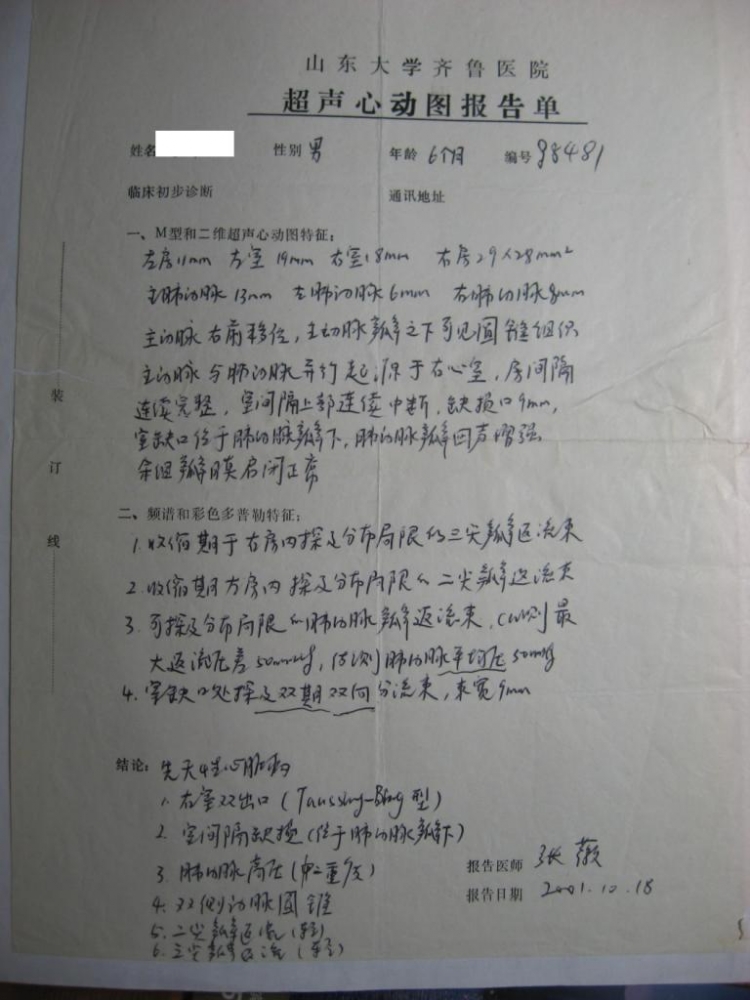 山东大学齐鲁医院
超声心动图报告单
姓名 性别 男 年龄 6个月 编号 98481
临床初步诊断 通讯地址
一、M型和二维超声心动图特征：
左房11mm 左室19mm 右室18mm 右房29×28mm²
主肺动脉13mm 左肺动脉6mm 右肺动脉8mm
主动脉右前移位，主动脉瓣之下可见圆锥组织
主动脉与肺动脉并行起源于右心室，房间隔
连续完整，室间隔上部连续中断，缺损口9mm，
室缺口位于肺动脉瓣下，肺动脉瓣回声增强
余组瓣膜启闭正常
二、频谱和彩色多普勒特征：
1. 收缩期于右房内探及分布局限的三尖瓣返流束
2. 收缩期左房内探及分布局限的二尖瓣返流束
3. 可探及分布局限的肺动脉瓣返流束，CW测最
大返流压差50mmHg，估测肺动脉平均压50mmHg
4. 室缺口处探及双期双向分流束，束宽9mm
装
订
线
结论：先天性心脏病
1. 右室双出口（Taussing-Bing型）
2. 室间隔缺损（位于肺动脉瓣下）
3. 肺动脉高压（重度）
4. 双侧动脉圆锥
5. 二尖瓣返流（轻）
6. 三尖瓣返流（轻）
报告医师 张薇
报告日期 2001.10.18